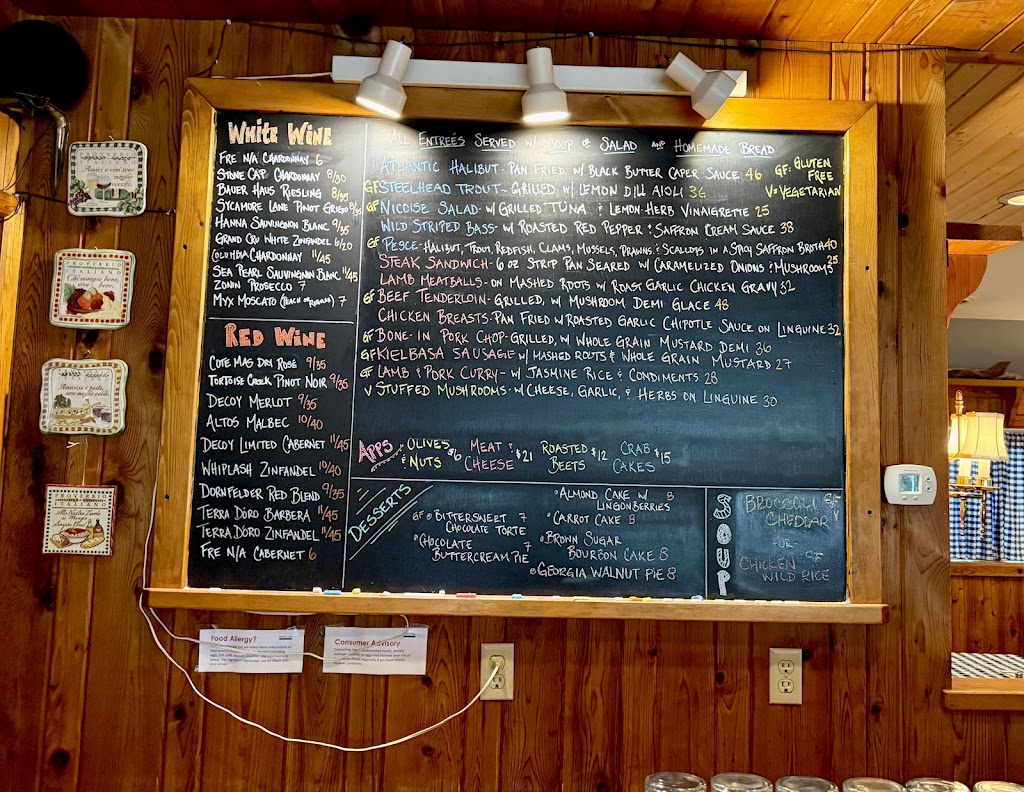 White Wine
Fre N/A Chardonnay 6
Stone Cap Chardonnay 8/30
Bauer Haus Riesling 8/35
Sycamore Lane Pinot Grigio 8/35
Hanna Sauvignon Blanc 9/35
Grand Cru White Zinfandel 6/20
Columbia Chardonnay 11/45
Sea Pearl Sauvignon Blanc 11/45
Zonin Prosecco 7
Myx Moscato 7
Red Wine
Cote Mas Dry Rosé 9/35
Tortoise Creek Pinot Noir 9/35
Decoy Merlot 9/35
Altos Malbec 10/40
Decoy Limited Cabernet 11/45
Whiplash Zinfandel 10/40
Dornfelder Red Blend 9/35
Terra D'oro Barbera 11/45
Terra D'oro Zinfandel 11/45
Fre N/A Cabernet 6
All Entreés Served w/ Soup or Salad and Homemade Bread
GF: Gluten Free
V= Vegetarian
Atlantic Halibut- Pan Fried w/ Black Butter Caper Sauce 46
GF Steelhead Trout- Grilled w/ Lemon Dill Aioli 36
GF Nicoise Salad- w/ Grilled Tuna & Lemon-Herb Vinaigrette 25
Wild Striped Bass- w/ Roasted Red Pepper & Saffron Cream Sauce 38
GF Pesce- Halibut, Trout, Redfish, Clams, Mussels, Prawns & Scallops in a Spicy Saffron Broth 40
Steak Sandwich- 6 oz Strip Pan Seared w/ Caramelized Onions & Mushrooms 25
Lamb Meatballs- on Mashed Roots w/ Roast Garlic Chicken Gravy 32
GF Beef Tenderloin- Grilled, w/ Mushroom Demi Glace 48
Chicken Breasts- Pan Fried w/ Roasted Garlic Chipotle Sauce on Linguine 32
GF Bone-In Pork Chop- Grilled, w/ Whole Grain Mustard Demi 36
GF Kielbasa Sausage w/ Mashed Roots & Whole Grain Mustard 27
GF Lamb & Pork Curry- w/ Jasmine Rice & Condiments 28
V Stuffed Mushrooms- w/ Cheese, Garlic, & Herbs on Linguine 30
Apps
Olives & Nuts $6
Meat & Cheese $21
Roasted Beets $12
Crab Cakes $15
Desserts
GF Bittersweet Chocolate Torte 7
Chocolate Buttercream Pie 7
Almond Cake w/ Lingonberries 8
Carrot Cake 8
Brown Sugar Bourbon Cake 8
Georgia Walnut Pie 8
Soup
Broccoli Cheddar
-or-
Chicken Wild Rice GF
Food Allergy?
Consumer Advisory